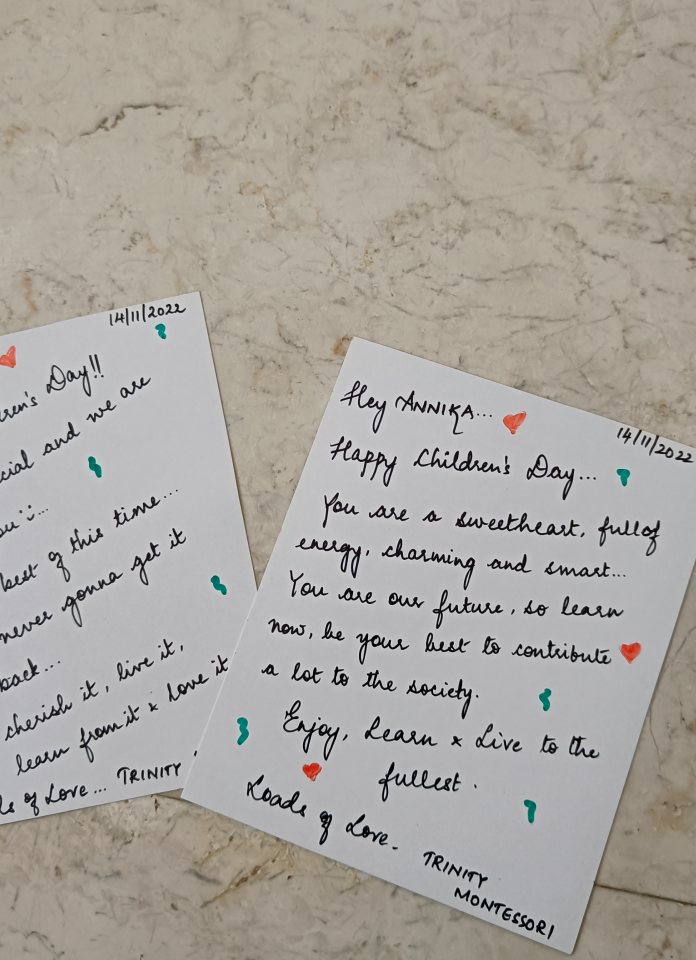 14/11/2022
Day!!
and we are
best of this time...
never gonna get it
back...
cherish it, live it,
learn from it & love it
of Love... TRINITY
Hey ANNIKA...
14/11/2022
Happy Children's Day...
You are a sweetheart, full of
energy, charming and smart...
You are our future, so learn
now, be your best to contribute
a lot to the society.
Enjoy, Learn & Live to the
fullest.
Loads of Love.
TRINITY
MONTESSORI